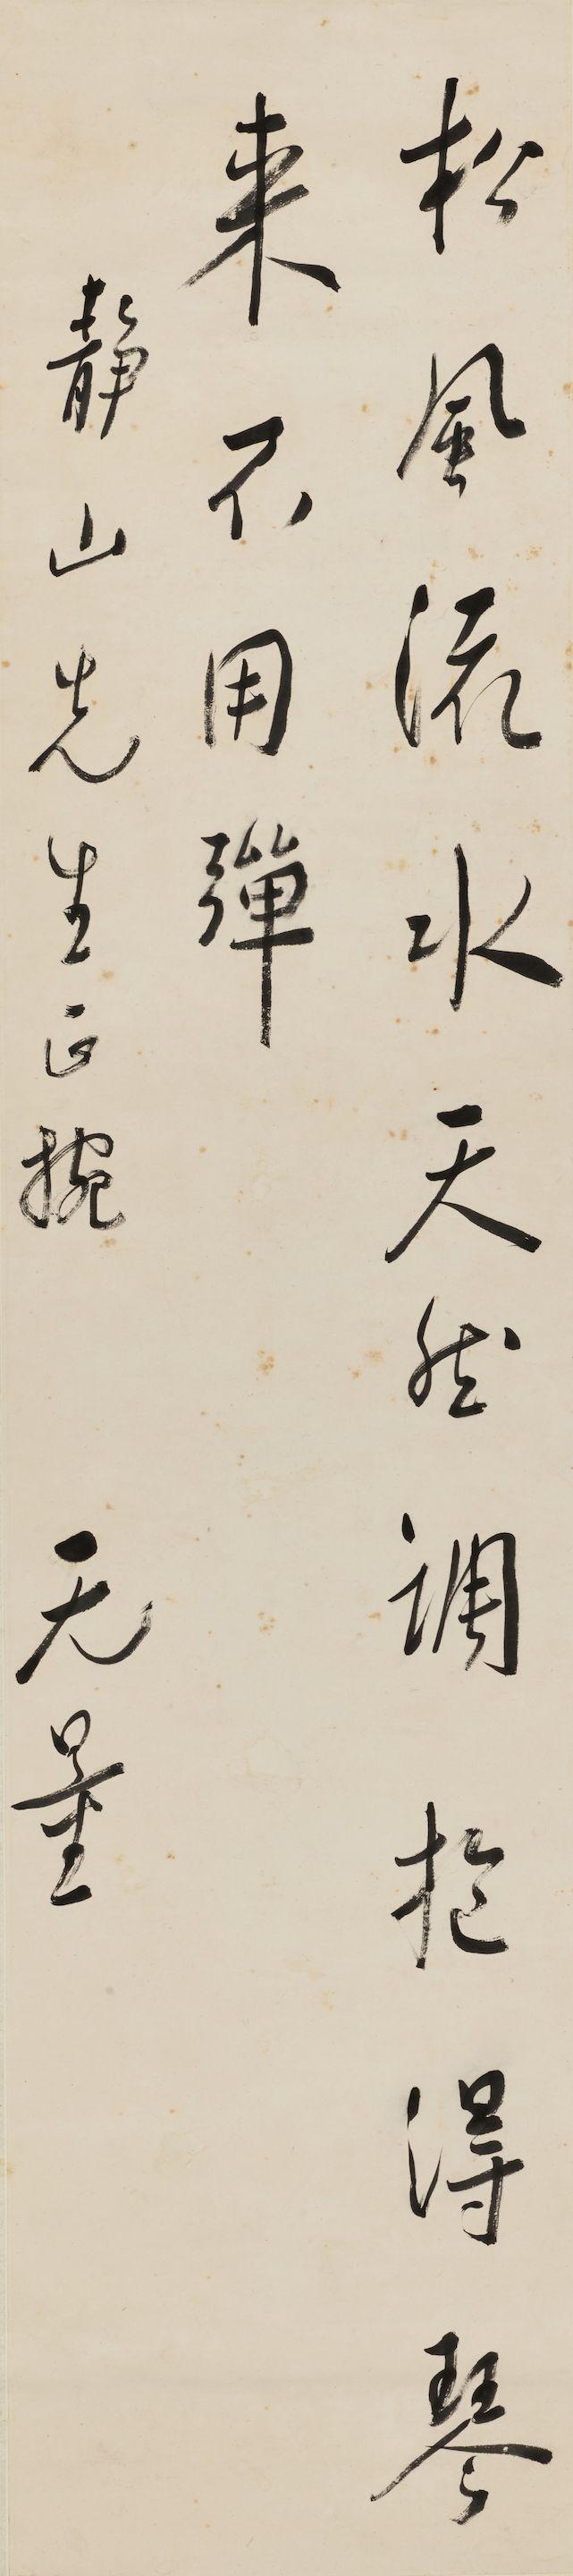 松風流水天然調抱得琴
来不用彈
靜山先生正腕
无量